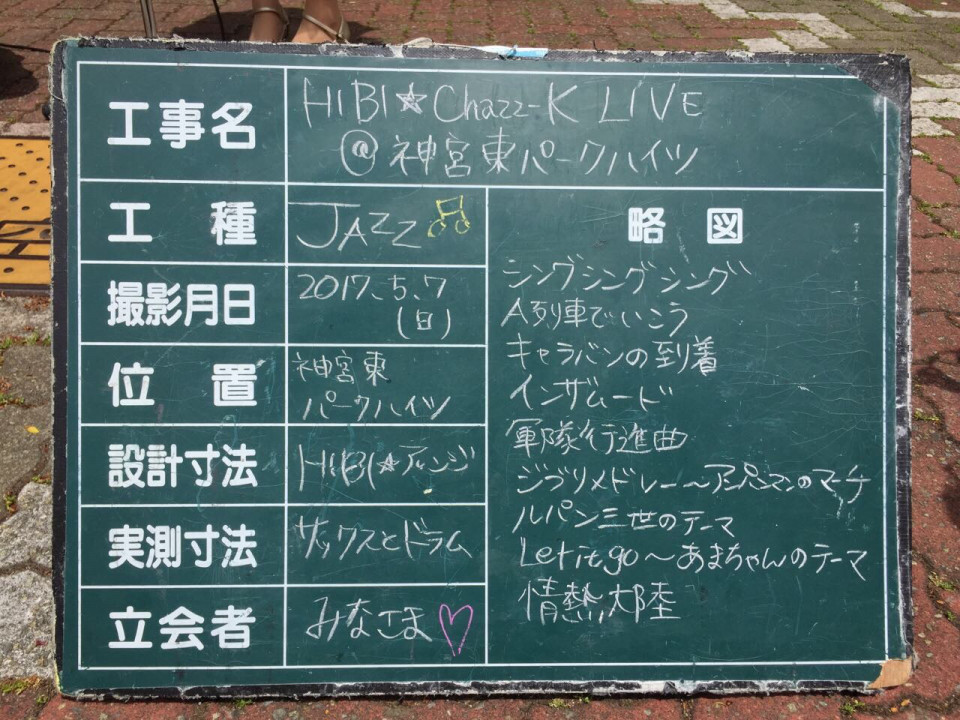 工事名
HIBI☆Chazz-K LIVE
@神宮東パークハイツ
工種
JAZZ♫
撮影月日
2017.5.7
(日)
位置
神宮東
パークハイツ
設計寸法
HIBI☆アレンジ
実測寸法
サックスとドラム
立会者
みなさま♡
略図
シングシングシング
A列車でいこう
キャラバンの到着
インザムード
軍隊行進曲
ジブリメドレー〜アンパンマンのマーチ
ルパン三世のテーマ
Let it go〜あまちゃんのテーマ
情熱大陸